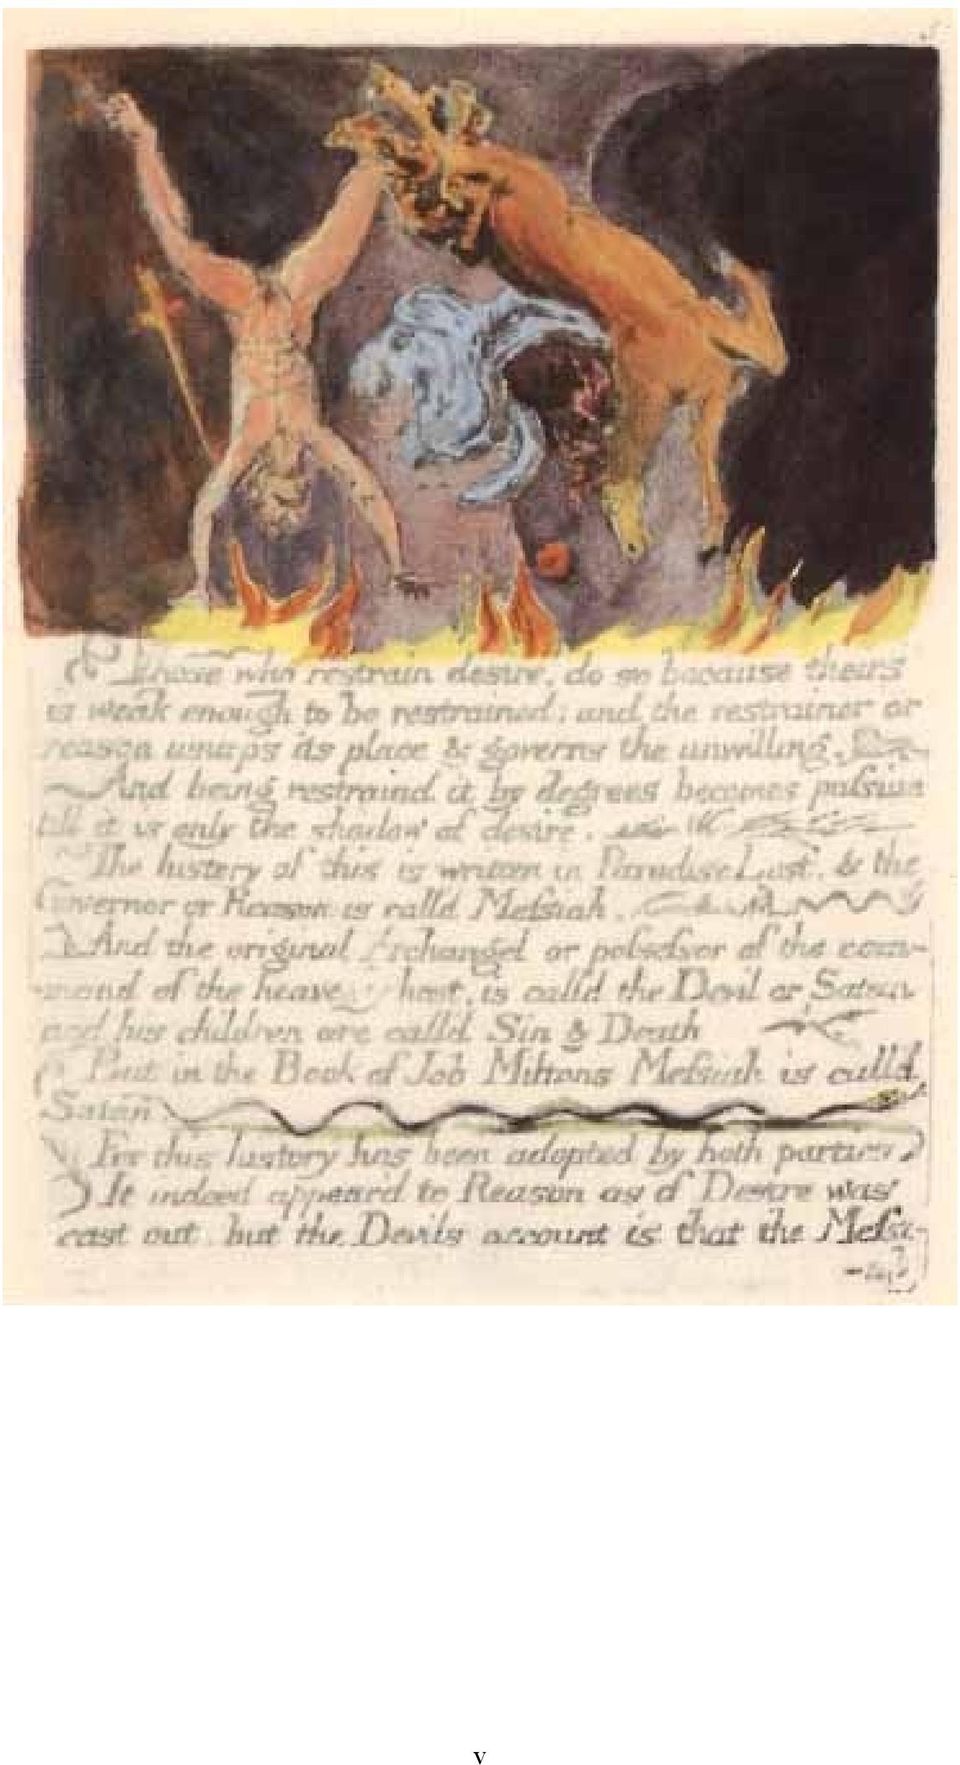 5
Those who restrain desire, do so because theirs
is weak enough to be restrained; and the restrainer or
reason usurps its place & governs the unwilling.
And being restraind it by degrees becomes passive
till it is only the shadow of desire.
The history of this is written in Paradise Lost, & the
Governor or Reason is call'd Messiah.
And the original Archangel or possessor of the com-
mand of the heavenly host, is calld the Devil or Satan
and his children are call'd Sin & Death
But in the Book of Job Miltons Messiah is call'd
Satan
For this history has been adopted by both parties
It indeed appear'd to Reason as if Desire was
cast out, but the Devils account is that the Messi-
-ah
v